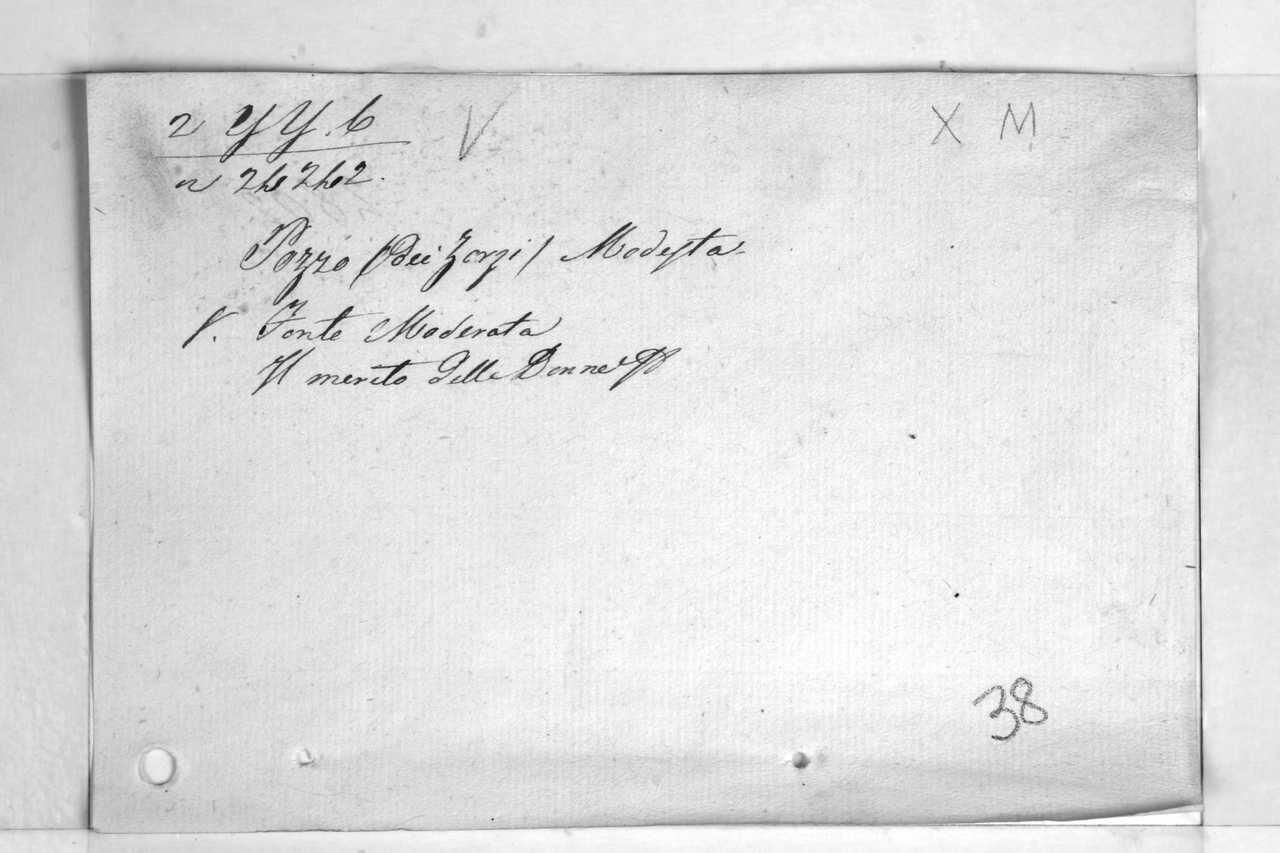 2 YY. 6 V X M
Pozzo (dei Zorzi) Modesta
V. Fonte Moderata
Il merito delle Donne
38